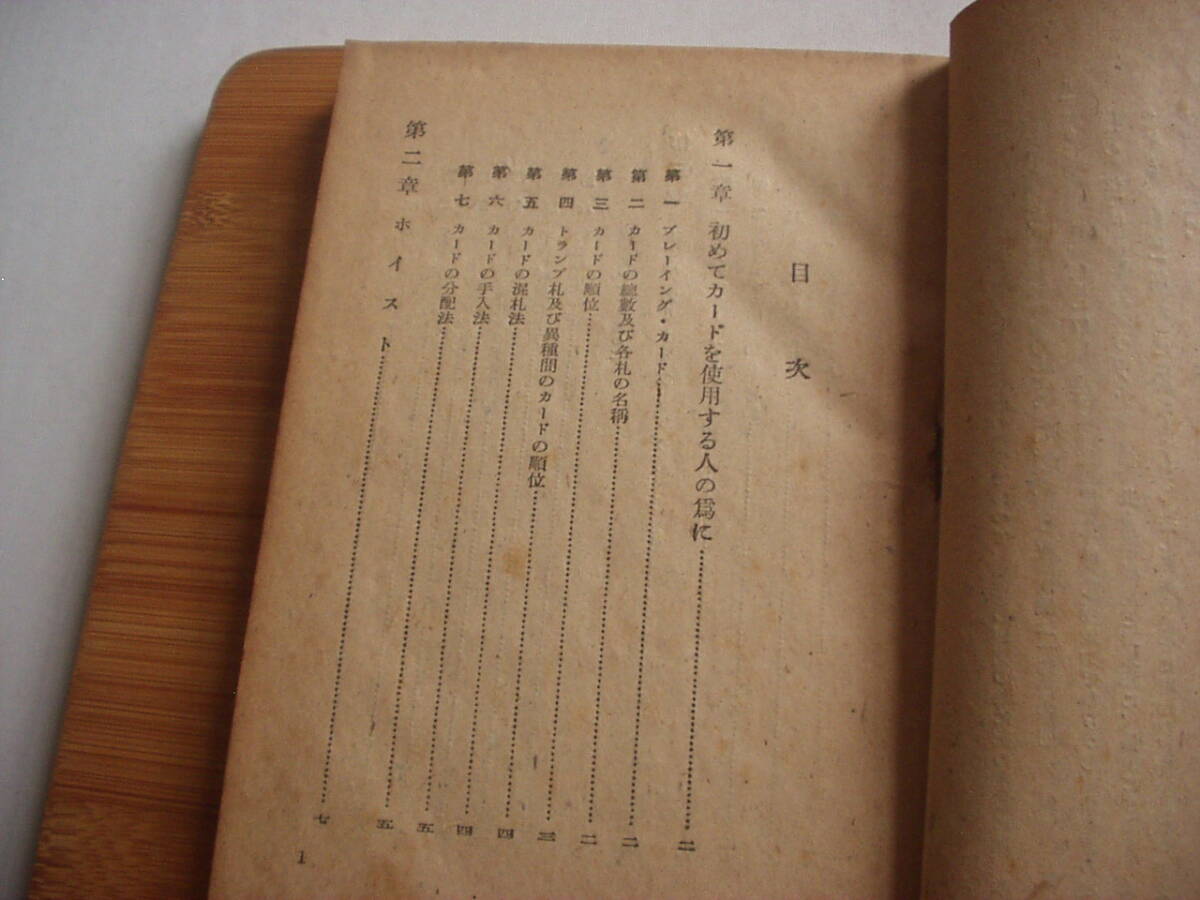 目次
第一章 初めてカードを使用する人の爲に……二
第一 プレーイング・カード……二
第二 カードの總數及び各札の名稱……二
第三 カードの順位……三
第四 トランプ札及び異種間のカードの順位……四
第五 カードの混札法……四
第六 カードの手入法……五
第七 カードの分配法……五
第二章 ホイスト……七
1